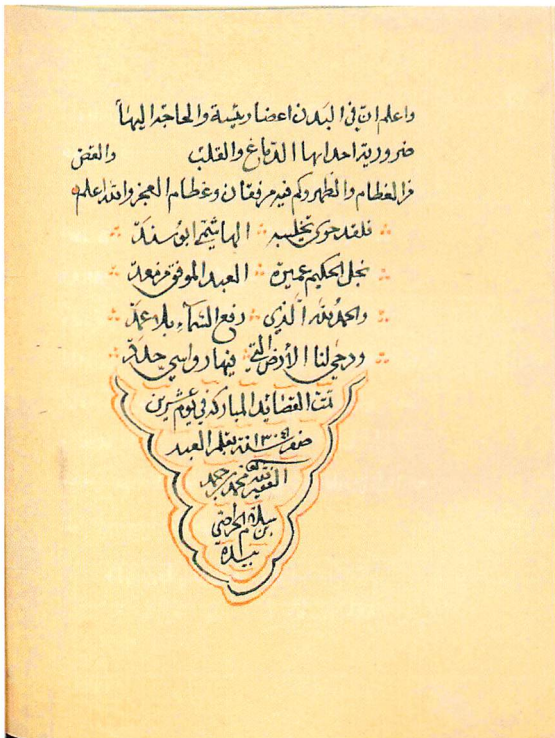 واعلم ان في البدن اعضا رئيسة والحاجة اليها
ضرورية احدايها الدماغ والقلب والقص
من العظام والظهر وكم فيه من فقان وعظام العجز والله اعلم
فلقد حوى الهاشمي ابو سند
نجل الحكيم عميرة العبد الموفق من معد
والحمد لله الذي رفع السماء بلا عمد
ودحى لنا الأرض التي فيها رواسي
تمت القصائد المباركة في يوم عشرين
صفر سنة ١٣٠٤ بقلم العبد
الفقير لله محمد بن حمد
بن سلامه
بيده